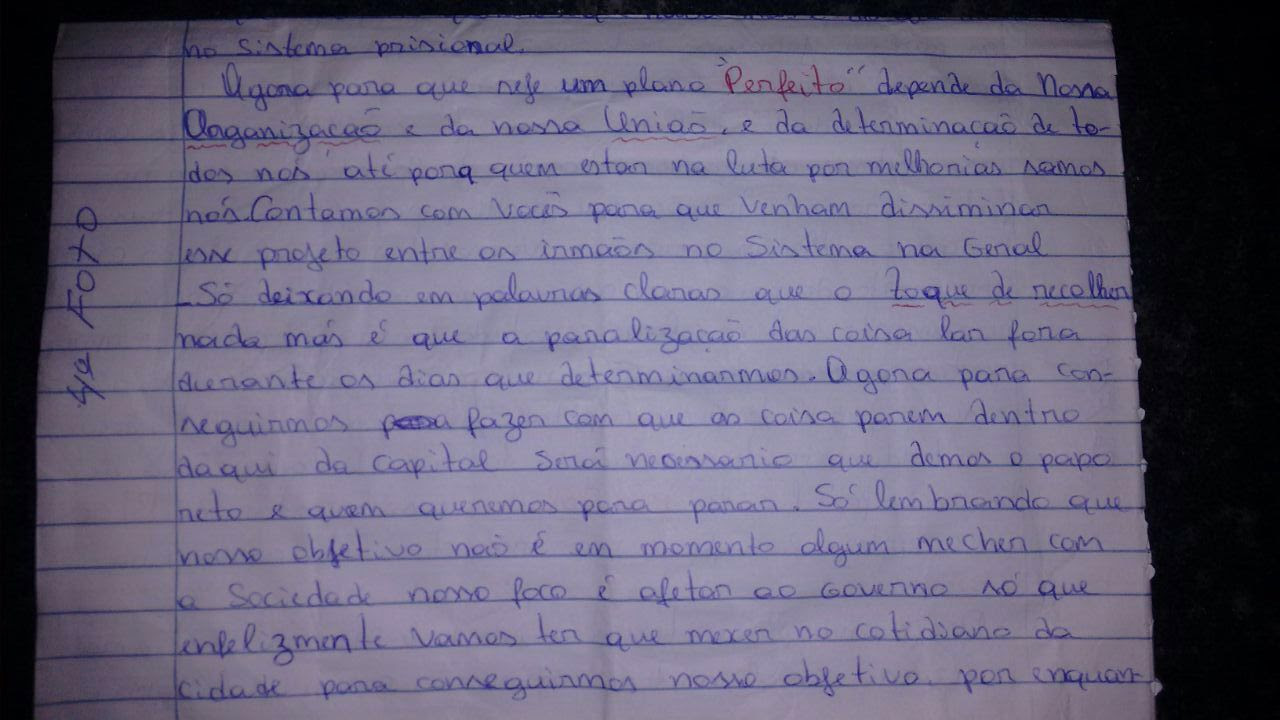 no sistema prisional.
Agora para que seje um plano "Perfeito" depende da Nossa
Organização e da nossa União, e da determinação de to-
dos nós até porq quem estar na luta por melhorias somos
nós. Contamos com Vocês para que Venham dissiminar
esse projeto entre os irmãos no Sistema na Geral
- Só deixando em palavras claras que o toque de recolher
nada más é que a paralização das coisa lar fora
durante os dias que determinarmos. Agora para con-
seguirmos fazer com que as coisa parem dentro
daqui da Capital Será necessario que demos o papo
reto a quem queremos para parar. Só lembrando que
nosso objetivo não é em momento algum mecher com
a Sociedade nosso foco é afetar ao Governo só que
enfelizmente Vamos ter que mexer no cotidiano da
cidade para conseguirmos nosso objetivo. por enquan-
4ª FOTO